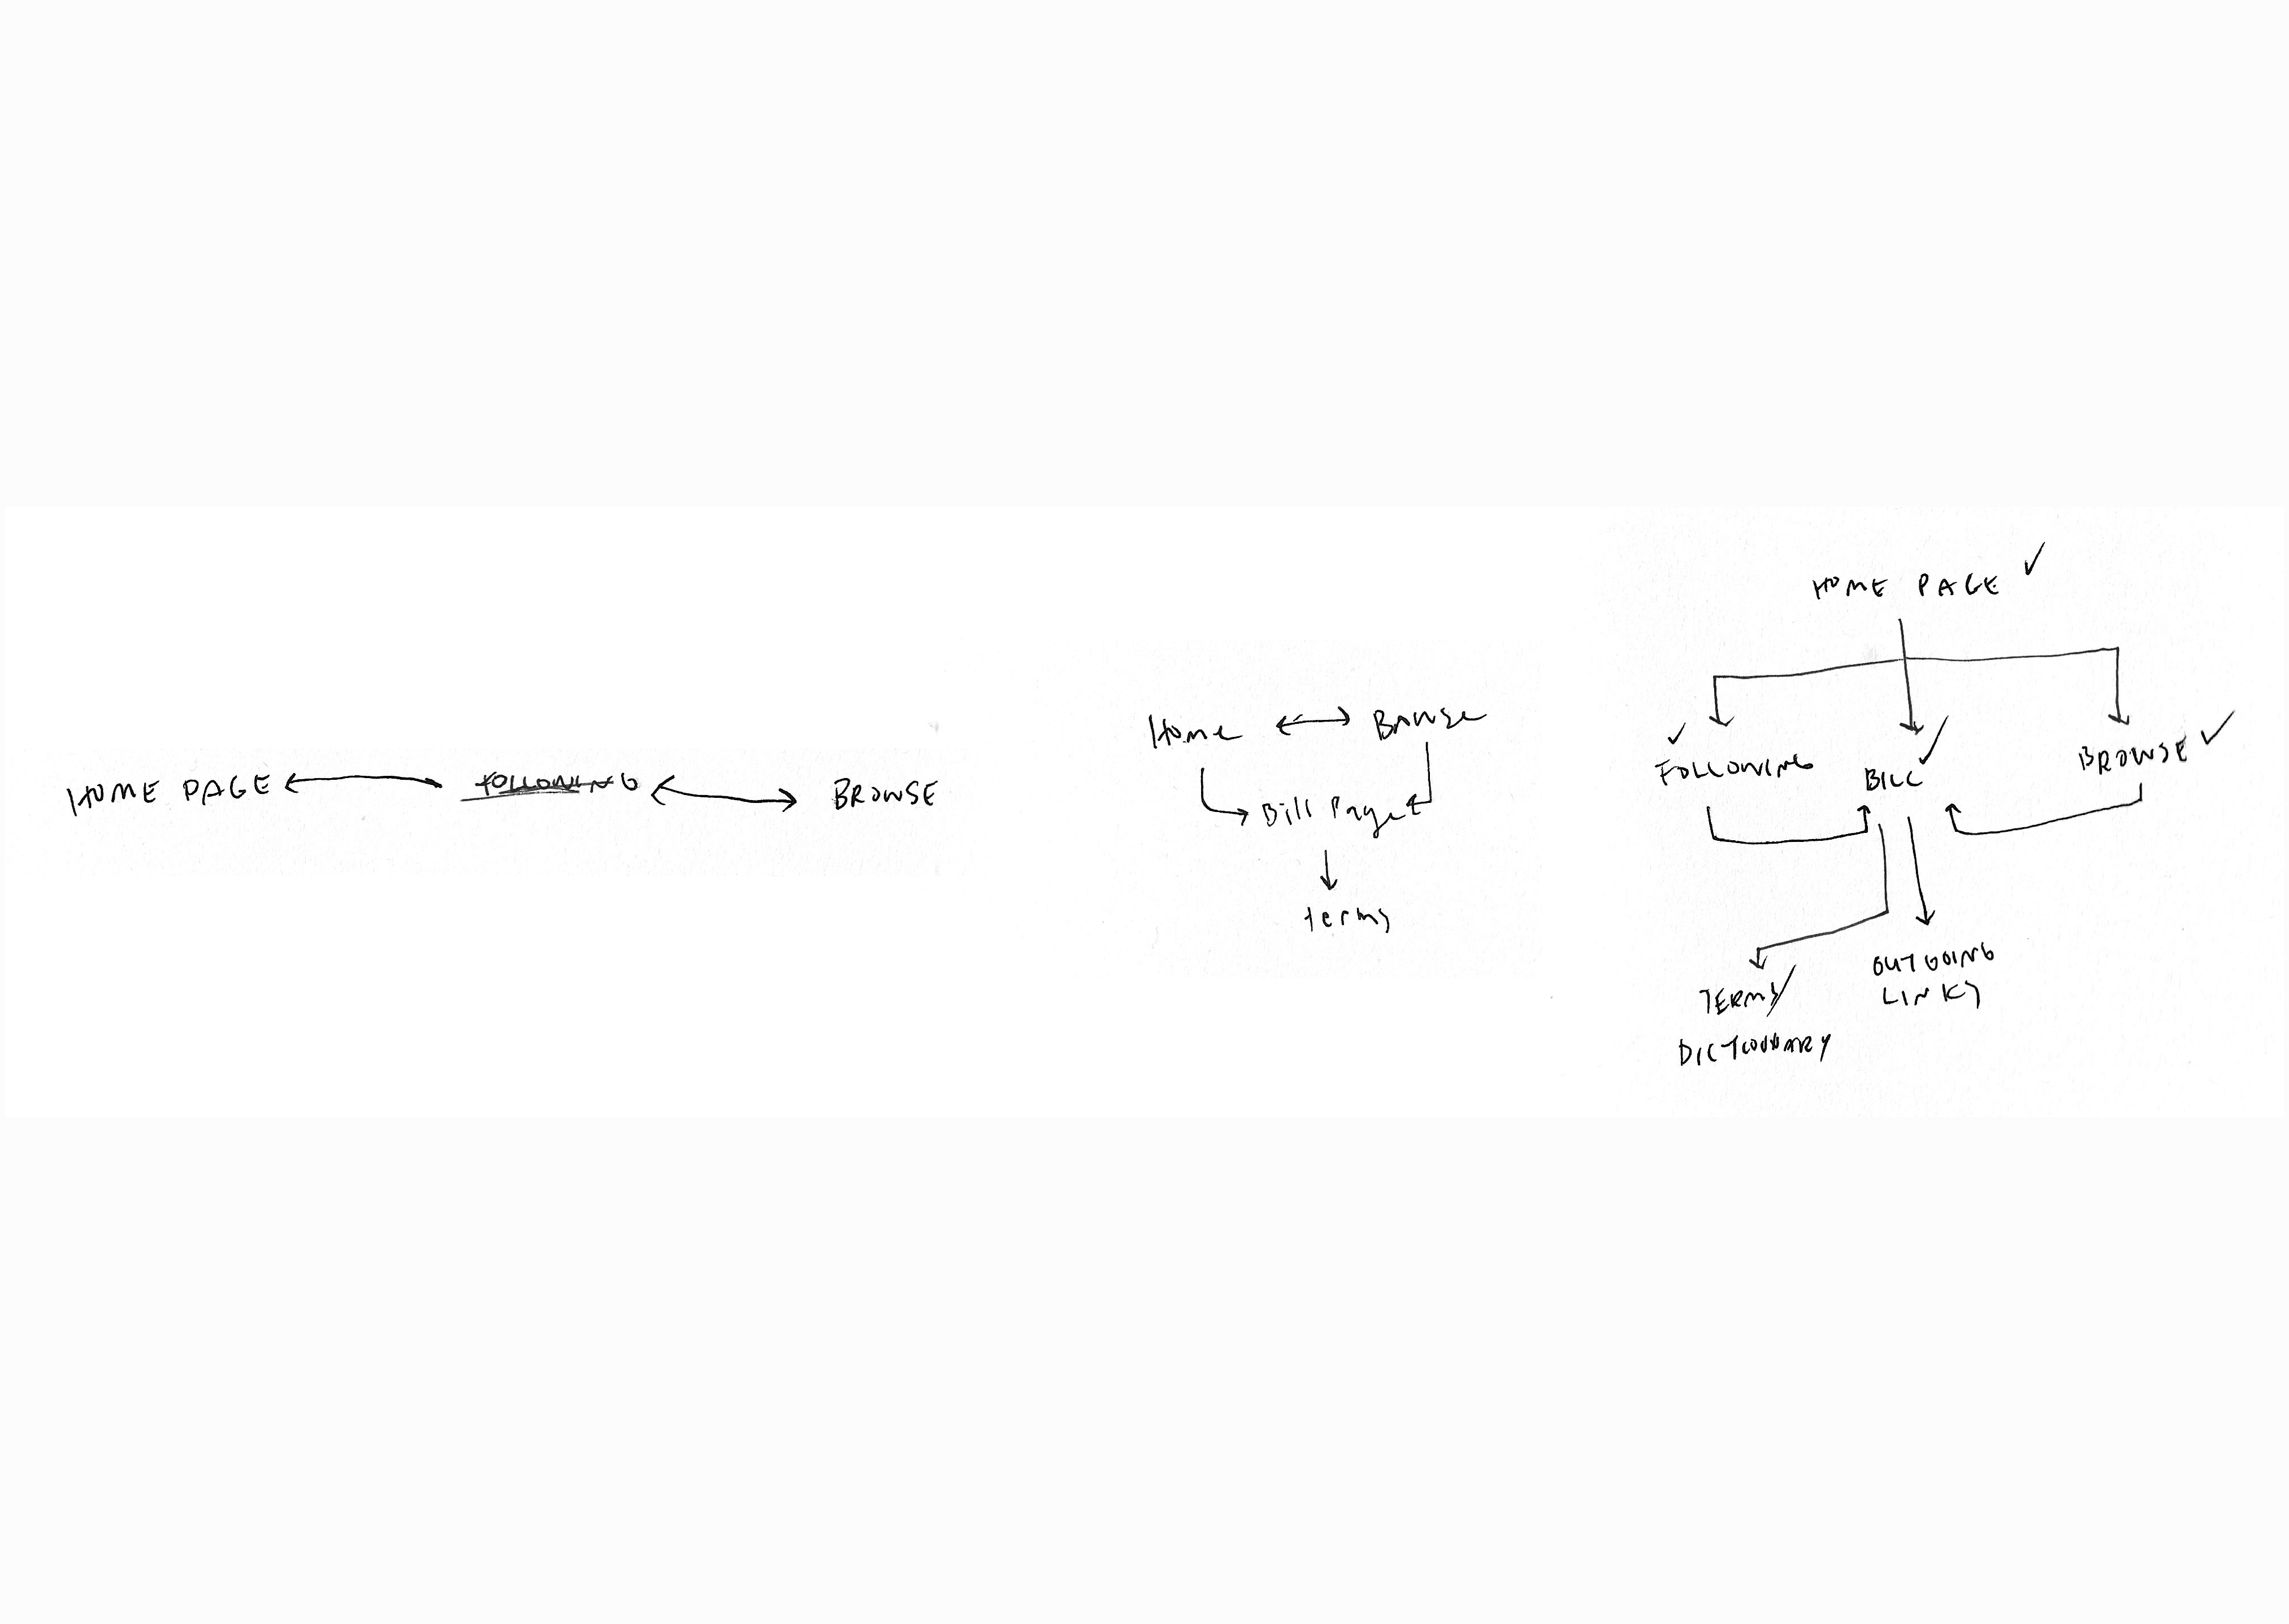 HOME PAGE FOLLOWING BROWSE
Home Browse
Bill Page
terms
HOME PAGE
FOLLOWING BILL BROWSE
TERMS/
DICTIONARY
OUTGOING
LINKS